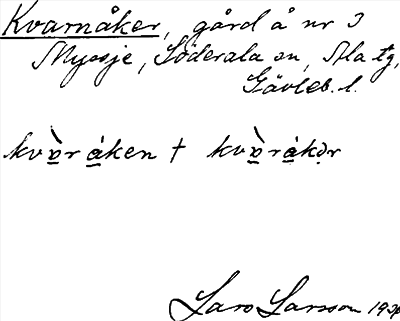 Kvarnåker, gård å nr 3
Myssje, Söderala sn, Ala tg,
Gävleb. l.
kvàr åken + kvàråkər
Lars Larsson